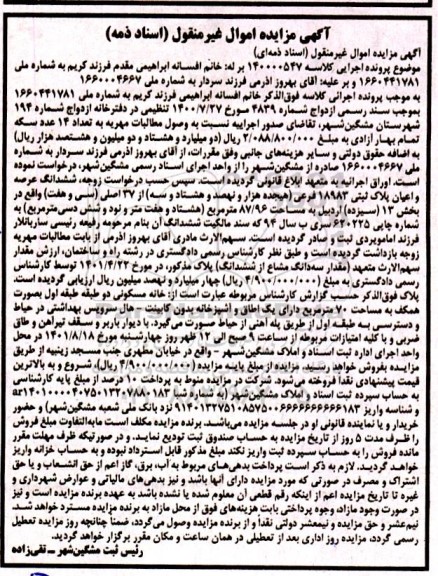 آگهی مزایده اموال غیرمنقول (اسناد ذمه)
آگهی مزایده اموال غیرمنقول (اسناد ذمه‌ای)
موضوع پرونده اجرایی کلاسه ۱۴۰۰۰۰۵۴۷ بر له: خانم افسانه ابراهیمی مقدم فرزند کریم به شماره ملی
۱۶۶۰۴۴۱۷۸۱ و بر علیه: آقای بهروز اذرمی فرزند سردار به شماره ملی ۱۶۶۰۰۰۴۶۶۷
به موجب پرونده اجرائی کلاسه فوق‌الذکر خانم افسانه ابراهیمی فرزند کریم به شماره ملی ۱۶۶۰۴۴۱۷۸۱
بموجب سند رسمی ازدواج شماره ۴۸۳۹ مورخ ۱۴۰۰/۷/۲۷ تنظیمی در دفترخانه ازدواج شماره ۱۹۴
شهرستان مشگین‌شهر، تقاضای صدور اجراییه نسبت به وصول مطالبات مهریه به تعداد ۱۴ عدد سکه
تمام بهار آزادی به مبلغ ۲/۰۸۸/۸۰۰/۰۰۰ ریال (دو میلیارد و هشتاد و دو میلیون و هشتصد هزار ریال)
به اضافه حقوق دولتی و سایر هزینه‌های جانبی وفق مقررات، از آقای بهروز آذرمی فرزند سردار به شماره
ملی ۱۶۶۰۰۰۴۶۶۷ صادره از مشگین‌شهر را از واحد اجرای اسناد رسمی مشگین‌شهر، درخواست نموده
است. اوراق اجرائیه به متعهد ابلاغ قانونی گردیده است. سپس حسب درخواست زوجه، ششدانگ عرصه
و اعیان پلاک ثبتی ۱۸۹۸۳ فرعی (هیجده هزار و نهصد و هشتاد و سه) از ۳۷ اصلی (سی و هفت) واقع در
بخش ۱۳ (سیزده) اردبیل به مساحت ۸۷/۹۶ مترمربع (هشتاد و هفت متر و نود و شش دسی‌مترمربع) به
شماره چاپی ۰۶۰۲۲۵ سری ب سال ۹۴ که سند مالکیت ششدانگ آن بنام مرحومه رفیعه رئیسی ساربانلار
فرزند امامویردی ثبت و صادر گردیده است. سهم‌الارث مادری آقای بهروز آذرمی از بابت مطالبات مهریه
زوجه بازداشت گردیده است و طبق نظر کارشناس رسمی دادگستری در رشته راه و ساختمان، ارزش مقدار
سهم‌الارث متعهد (مقدار سه‌دانگ مشاع از ششدانگ) پلاک مذکور، در مورخ ۱۴۰۱/۴/۲۲ توسط کارشناس
رسمی دادگستری به مبلغ (۴/۹۰۰/۰۰۰/۰۰۰ ریال) چهار میلیارد و نهصد میلیون ریال ارزیابی گردیده است.
پلاک فوق‌الذکر حسب گزارش کارشناس مربوطه عبارت است از: خانه مسکونی دو طبقه طبقه اول بصورت
همکف به مساحت ۷۰ مترمربع دارای یک اطاق و آشپزخانه بدون کابینت – هال سرویس بهداشتی در حیاط
و دسترسی به طبقه اول از طریق پله آهنی از حیاط صورت می‌گیرد. با دیوار باربر و سقف تیرآهن و طاق
ضربی و با کلیه امتیازات مربوطه از ساعت ۹ صبح الی ۱۲ ظهر روز چهارشنبه مورخ ۱۴۰۱/۸/۱۸ در محل
واحد اجرای اداره ثبت اسناد و املاک مشگین‌شهر – واقع در خیابان مطهری جنب مسجد زینبیه از طریق
مزایده بفروش خواهد رسید. مزایده از مبلغ پایه مزایده ریال) شروع و به بالاترین
قیمت پیشنهادی نقداً فروخته می‌شود. شرکت در مزایده منوط به پرداخت ۱۰ درصد از مبلغ پایه کارشناسی
به حساب سپرده ثبت اسناد و املاک مشگین‌شهر به شماره شبا
و شناسه واریز نزد بانک ملی شعبه مشگین‌شهر) و حضور
خریدار و یا نماینده قانونی او در جلسه مزایده می‌باشد. برنده مزایده مکلف است مابه‌التفاوت مبلغ فروش
را ظرف مدت ۵ روز از تاریخ مزایده به حساب صندوق ثبت تودیع نمایند. و در صورتیکه ظرف مهلت مقرر
مانده فروش را به حساب سپرده ثبت واریز نکند مبلغ مذکور قابل استرداد نبوده و به حساب خزانه واریز
خواهد گردید. لازم به ذکر است پرداخت بدهی‌های مربوط به آب، برق، گاز اعم از حق انشعاب و یا حق
اشتراک و مصرف در صورتی که مورد مزایده دارای آنها باشد و نیز بدهی‌های مالیاتی و عوارض شهرداری و
غیره تا تاریخ مزایده اعم از اینکه رقم قطعی آن معلوم شده یا نشده باشد به عهده برنده مزایده است و نیز
در صورت وجود مازاد، وجوه پرداختی بابت هزینه‌های فوق از محل مازاد به برنده مزایده مسترد خواهد شد.
نیم‌عشر و حق مزایده و نیم‌عشر دولتی نقداً و از برنده مزایده وصول می‌گردد، ضمناً چنانچه روز مزایده تعطیل
رسمی گردد، مزایده روز اداری بعد از تعطیلی در همان ساعت و مکان مقرر برگزار خواهد گردید.
رئیس ثبت مشگین‌شهر – تقی‌زاده